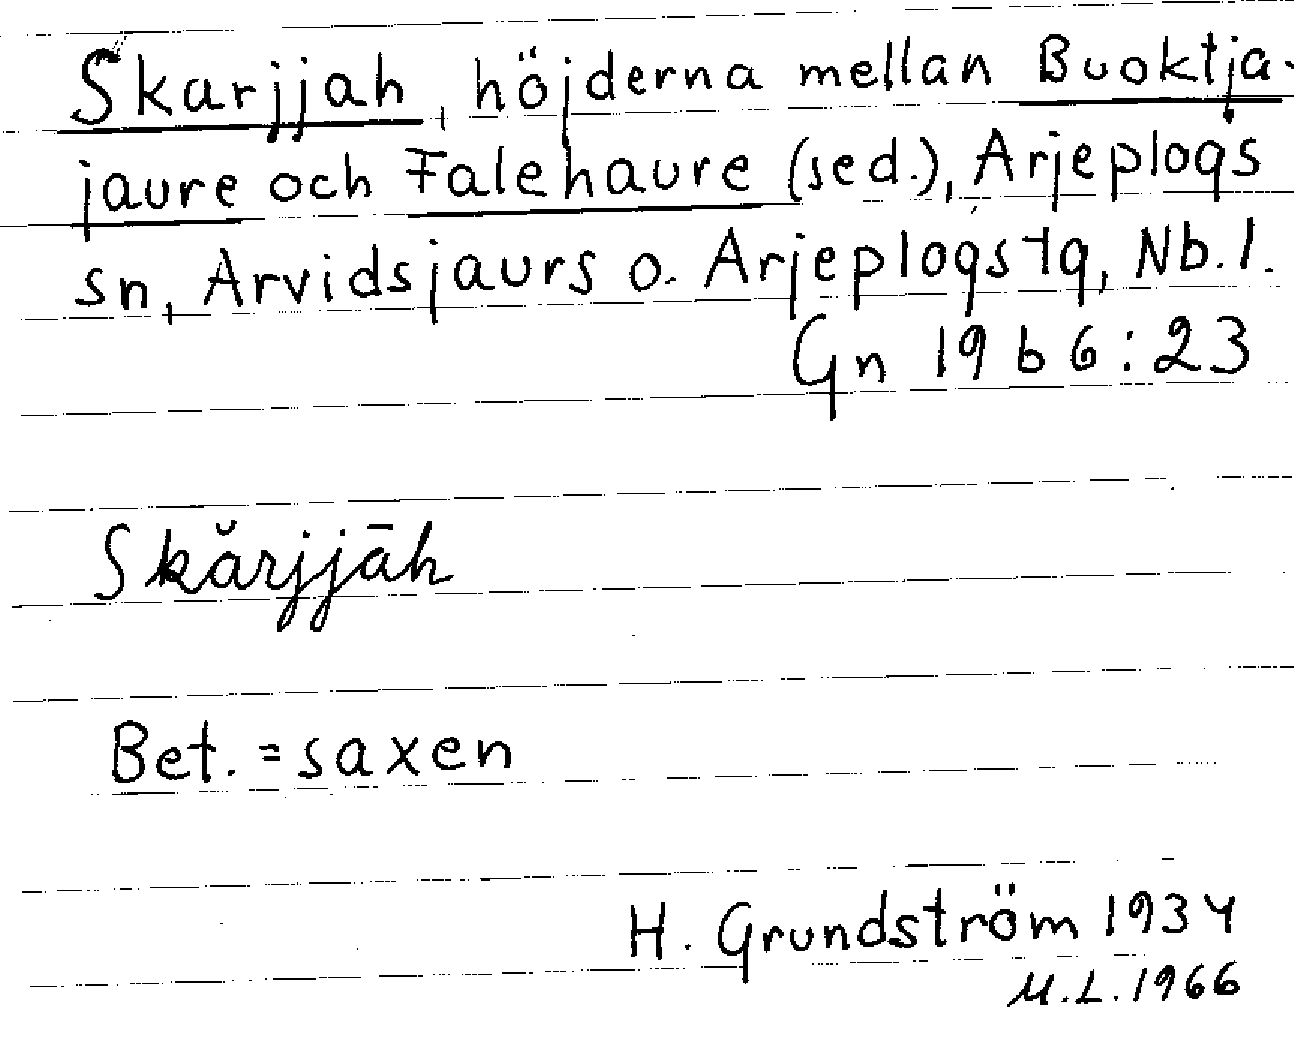 Skarjjah, höjderna mellan Buoktja-
jaure och Falehaure (sed.), Arjeplogs
sn, Arvidsjaurs o. Arjeplogs tg, Nb. l.
Gn 19 b 6:23
Skărjjāh
Bet. = saxen
H. Grundström 1934
M.L. 1966